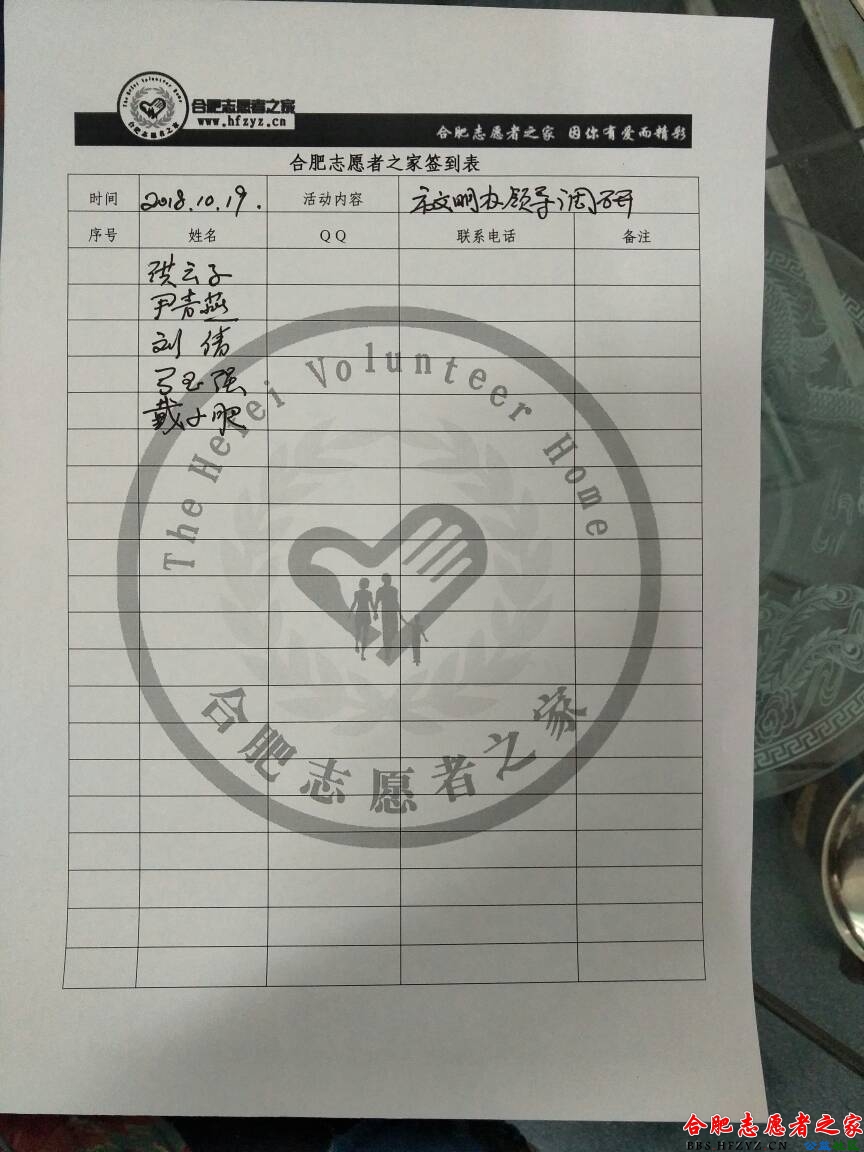 The Hefei Volunteer Home
合肥志愿者之家
合肥志愿者之家
www.hfzyz.cn
合肥志愿者之家 因你有爱而精彩
合肥志愿者之家签到表
时间 2018.10.19. 活动内容 市文明办领导调研
序号 姓名 QQ 联系电话 备注
洪云子
尹青燕
刘倩
弓玉强
戴小肥
The Hefei Volunteer Home
合肥志愿者之家
合肥志愿者之家
BBS.HFZYZ.CN